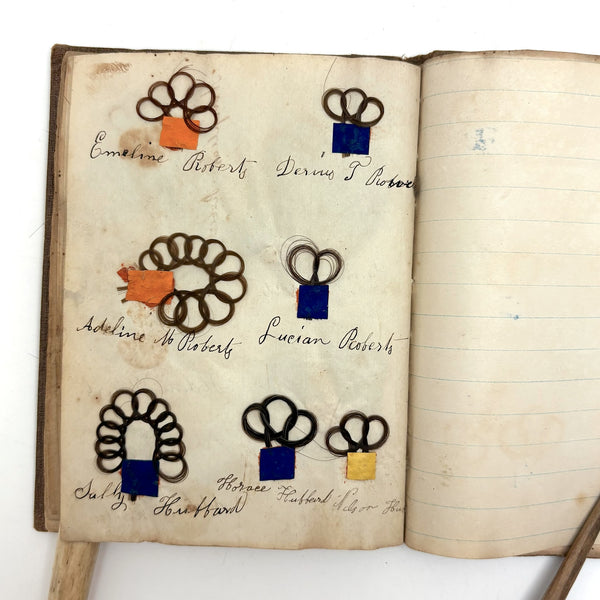 Emeline Roberts
Derius T
Adeline M Roberts
Lucian Roberts
Sally Hubbard
Horace Hubbard